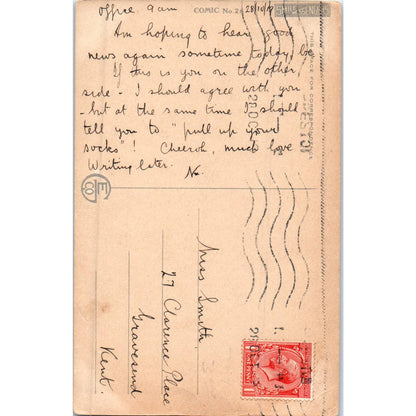 office 9am
COMIC No. 2
28/10/19
Am hoping to hear good
news again sometime today, be
If this is you on the other
side - I should agree with you
- but at the same time I should
tell you to "pull up your
socks"! Cheeroh, much love
Writing later.
THIS SPACE FOR CORRESPONDENCE
Miss Smith.
27 Clarence Place
Gravesend
Kent.